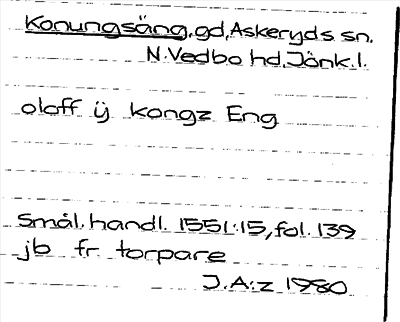 Konungsäng, gd, Askeryds sn.
N. Vedbo hd, Jönk. l.
oloff ÿ kongz Eng
Smål. handl. 1551:15, fol. 139
jb fr torpare
J.A:z 1980